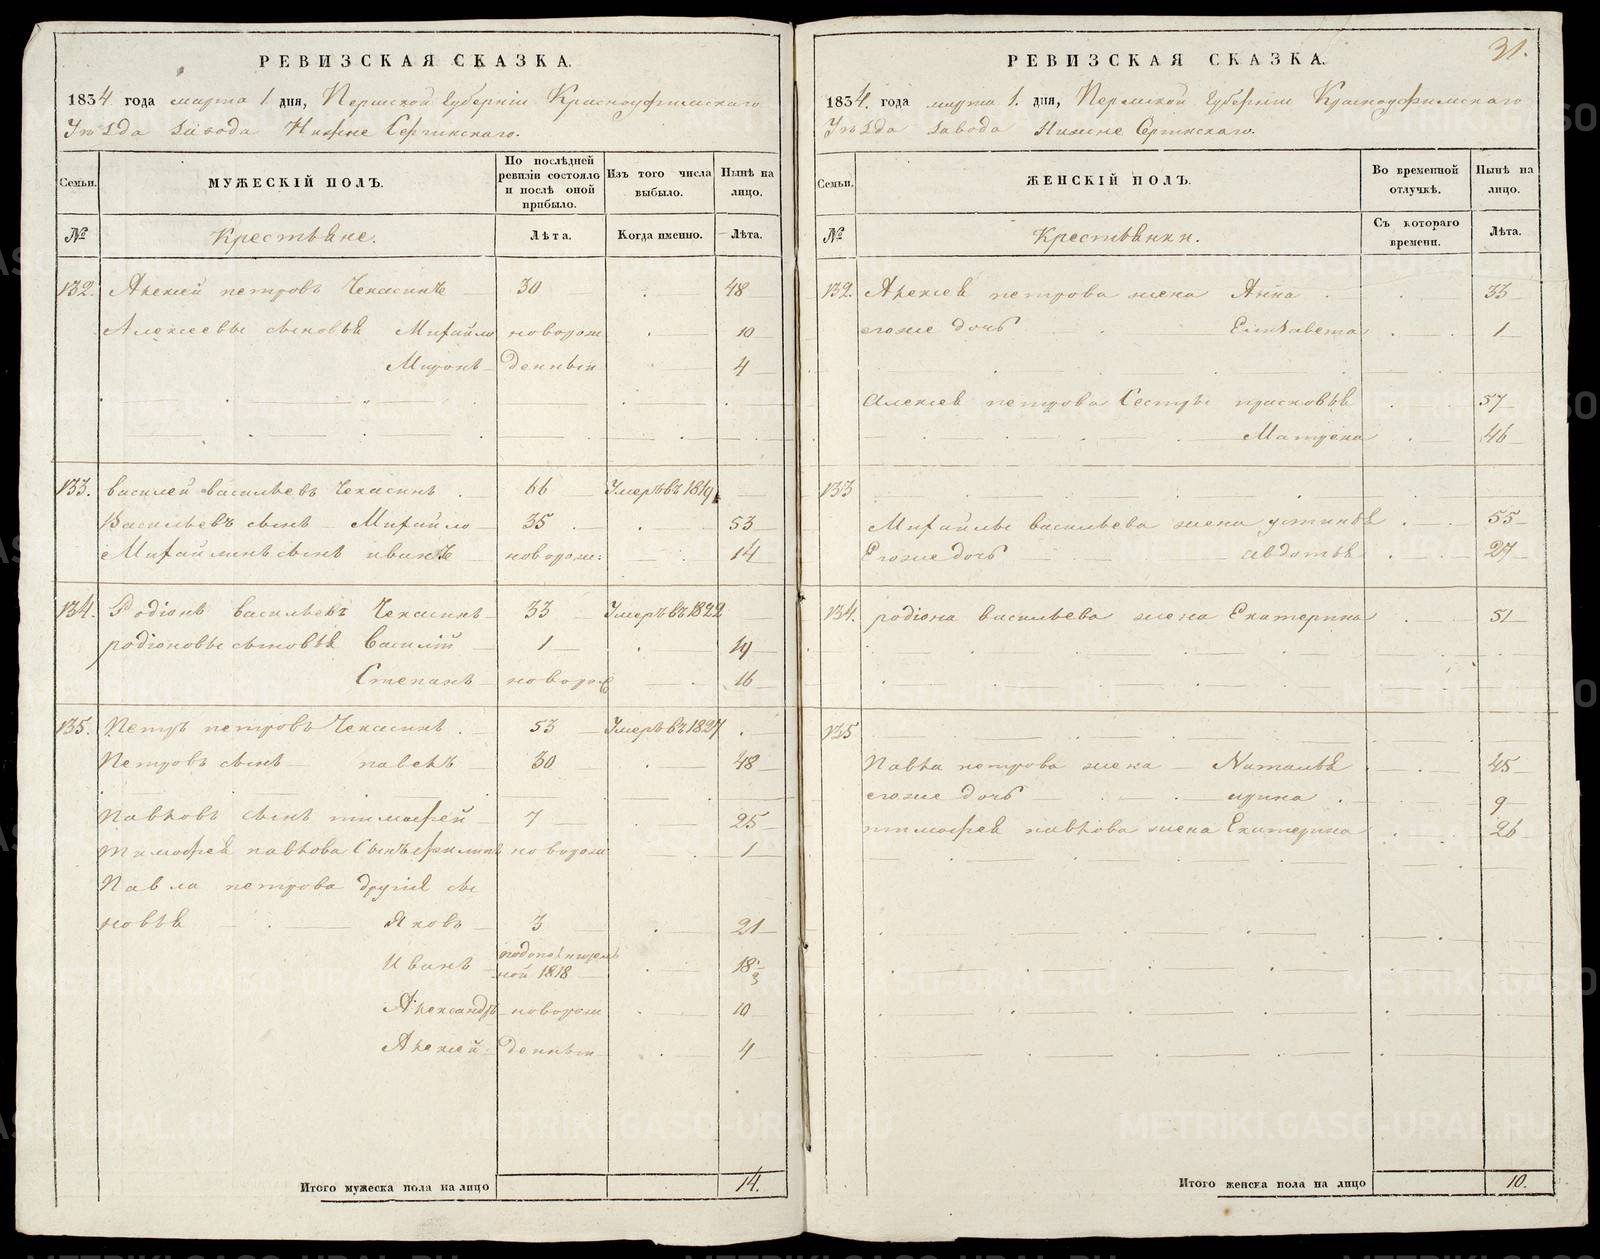 РЕВИЗСКАЯ СКАЗКА.
1834. года марта 1. дня, Пермской Губерніи Красноуфимскаго
Уѣзда Завода Нижне Сергинскаго.
Семьи.
МУЖЕСКІЙ ПОЛЪ.
По послѣдней ревизіи состояло и послѣ оной прибыло.
Изъ того числа выбыло.
Нынѣ на лицо.
№
Крестьяне.
Лѣта.
Когда именно.
Лѣта.
132. Алексей петровъ Чекасинъ 30 48
Алексеевы сыновья Михайло новорож 10
Миронъ денныи 4
133. василей васильевъ Чекасинъ 66 Умеръ въ 1819
Васильевъ сынъ Михайло 35 53
Михайлинъ сынъ иванъ новорож: 14
134. Родіонъ васильевъ Чекасинъ 33 Умеръ въ 1822
родіоновы сыновья Василій 1 19
Степанъ новорож 16
135. Петръ петровъ Чекасинъ 53 Умеръ въ 1827
Петровъ сынъ павелъ 30 48
Павловъ сынъ тимофей 7 25
тимофея павлова Сынъ филипъ новорож 1
Павла петрова другія сы
новья Яковъ 3 21
Иванъ 1818 18
Александръ новорож 10
Алексей денныи 4
Итого мужеска пола на лицо 14.
31.
РЕВИЗСКАЯ СКАЗКА.
1834. года марта 1. дня, Пермской Губерніи Красноуфимскаго
Уѣзда Завода Нижне Сергинскаго.
Семьи.
ЖЕНСКІЙ ПОЛЪ.
Во временной отлучкѣ.
Нынѣ на лицо.
№
Крестьянки.
Съ котораго времени.
Лѣта.
132. Алексея петрова жена Анна 33
егоже дочь Елисавета 1
Алексея петрова Сестры прасковья 57
Матрена 46
133
Михайлы васильева жена устинья 55
Егоже дочь авдотья 27
134. родіона васильева жена Екатерина 51
135
Павла петрова жена Наталья 45
егоже дочь ирина 9
тимофея павлова жена Екатерина 26
Итого женска пола на лицо 10.
METRIKI.GASO-URAL.RU